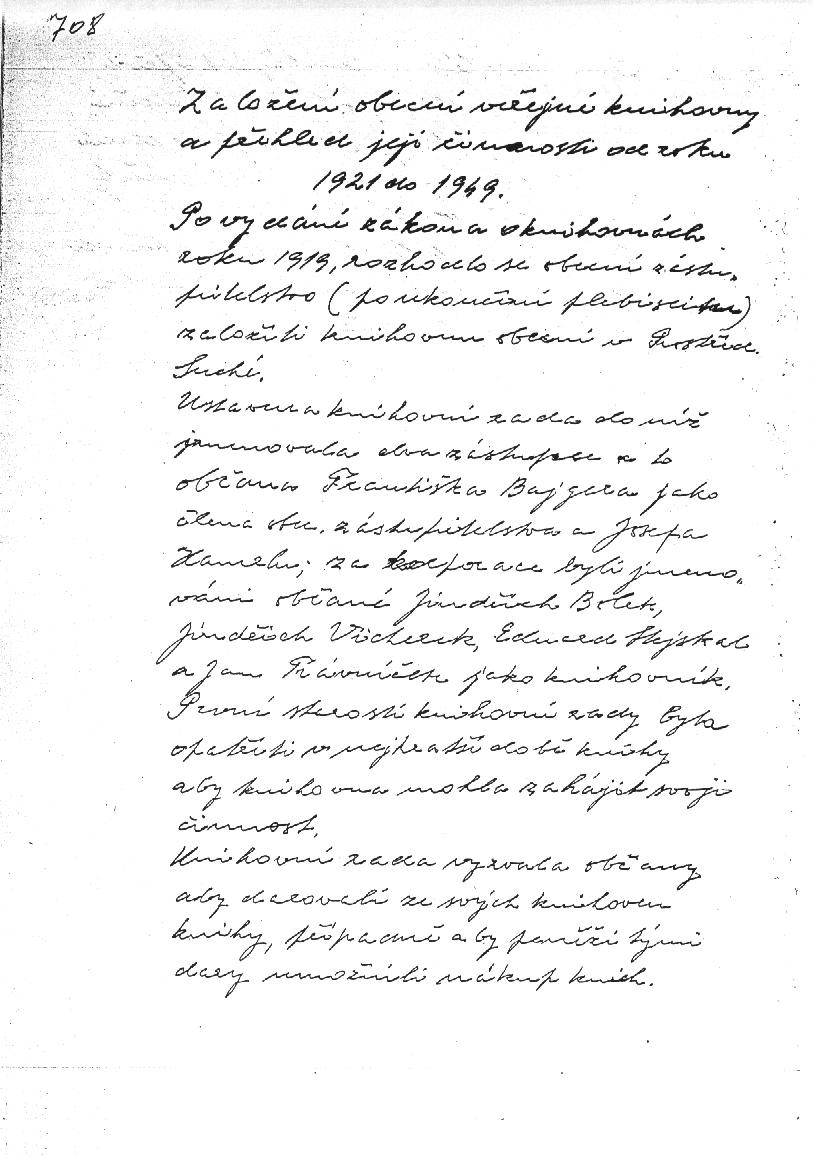 708
Založení obecní veřejné knihovny
a přehled její činnosti od roku
1921 do 1949.
Po vydání zákona o knihovnách
roku 1919, rozhodlo se obecní zastu„
pitelstvo (po ukončení plebiscitu)
založiti knihovnu obecní v Prostřed.
Suché.
Ustavena knihovní rada do níž
jmenovala dva zástupce a to
občana Františka Bajgera jako
člena obec. zástupitelstva a Josefa
za korporace byli jmeno„
váni občané Jindřich Bolek,
Jindřich Vicherek, Eduard
a Jan Trávníček jako knihovník.
První starostí knihovní rady byla
opatřiti v nejkratší době knihy
aby knihovna mohla zahájit svoji
činnost.
Knihovní rada vyzvala občany
aby darovali ze svých knihoven
knihy, případně aby peněžitými
dary umožnili nákup knih.